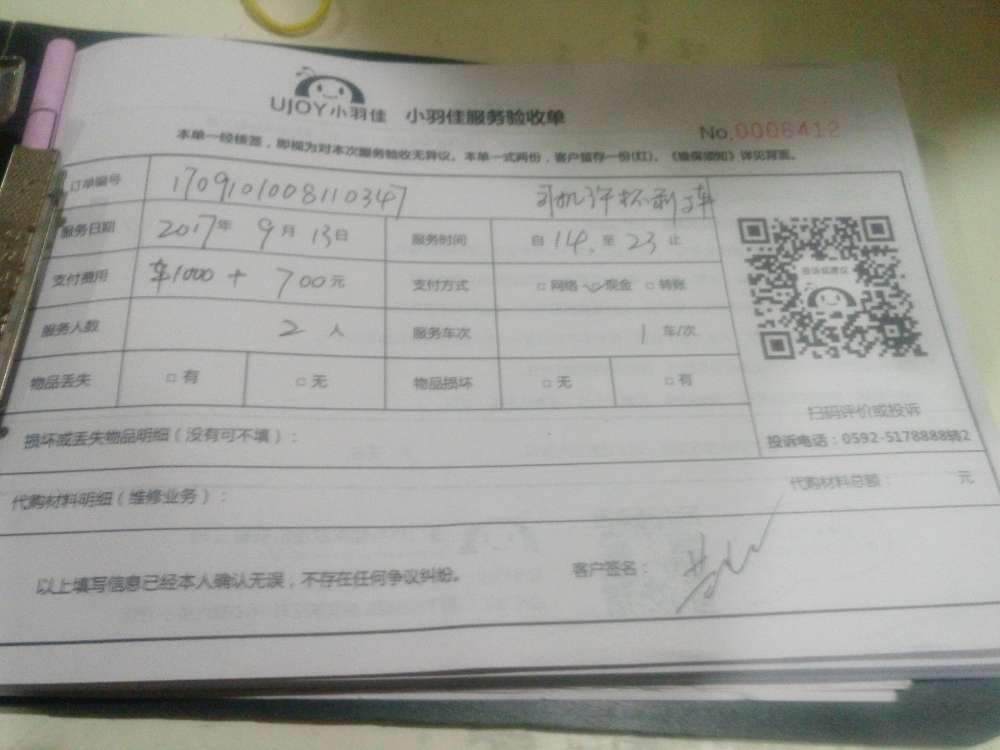 UJOY小羽佳 小羽佳服务验收单
No.0006412
本单一经核签，即视为对本次服务验收无异议。本单一式两份，客户留存一份(红)。《维保须知》详见背面。
订单编号 1709101008110347 司机许 车
服务日期 2017年 9月 13日 服务时间 自 14 至 23 止
支付费用 车1000 + 700元 支付方式 □网络 ☑现金 □转账
服务人数 2 人 服务车次 1 车/次
物品丢失 □有 □无 物品损坏 □无 □有
投诉或建议
扫码评价或投诉
投诉电话：0592-5178888转2
损坏或丢失物品明细（没有可不填）：
代购材料明细（维修业务）： 代购材料总额： 元
以上填写信息已经本人确认无误，不存在任何争议纠纷。 客户签名：